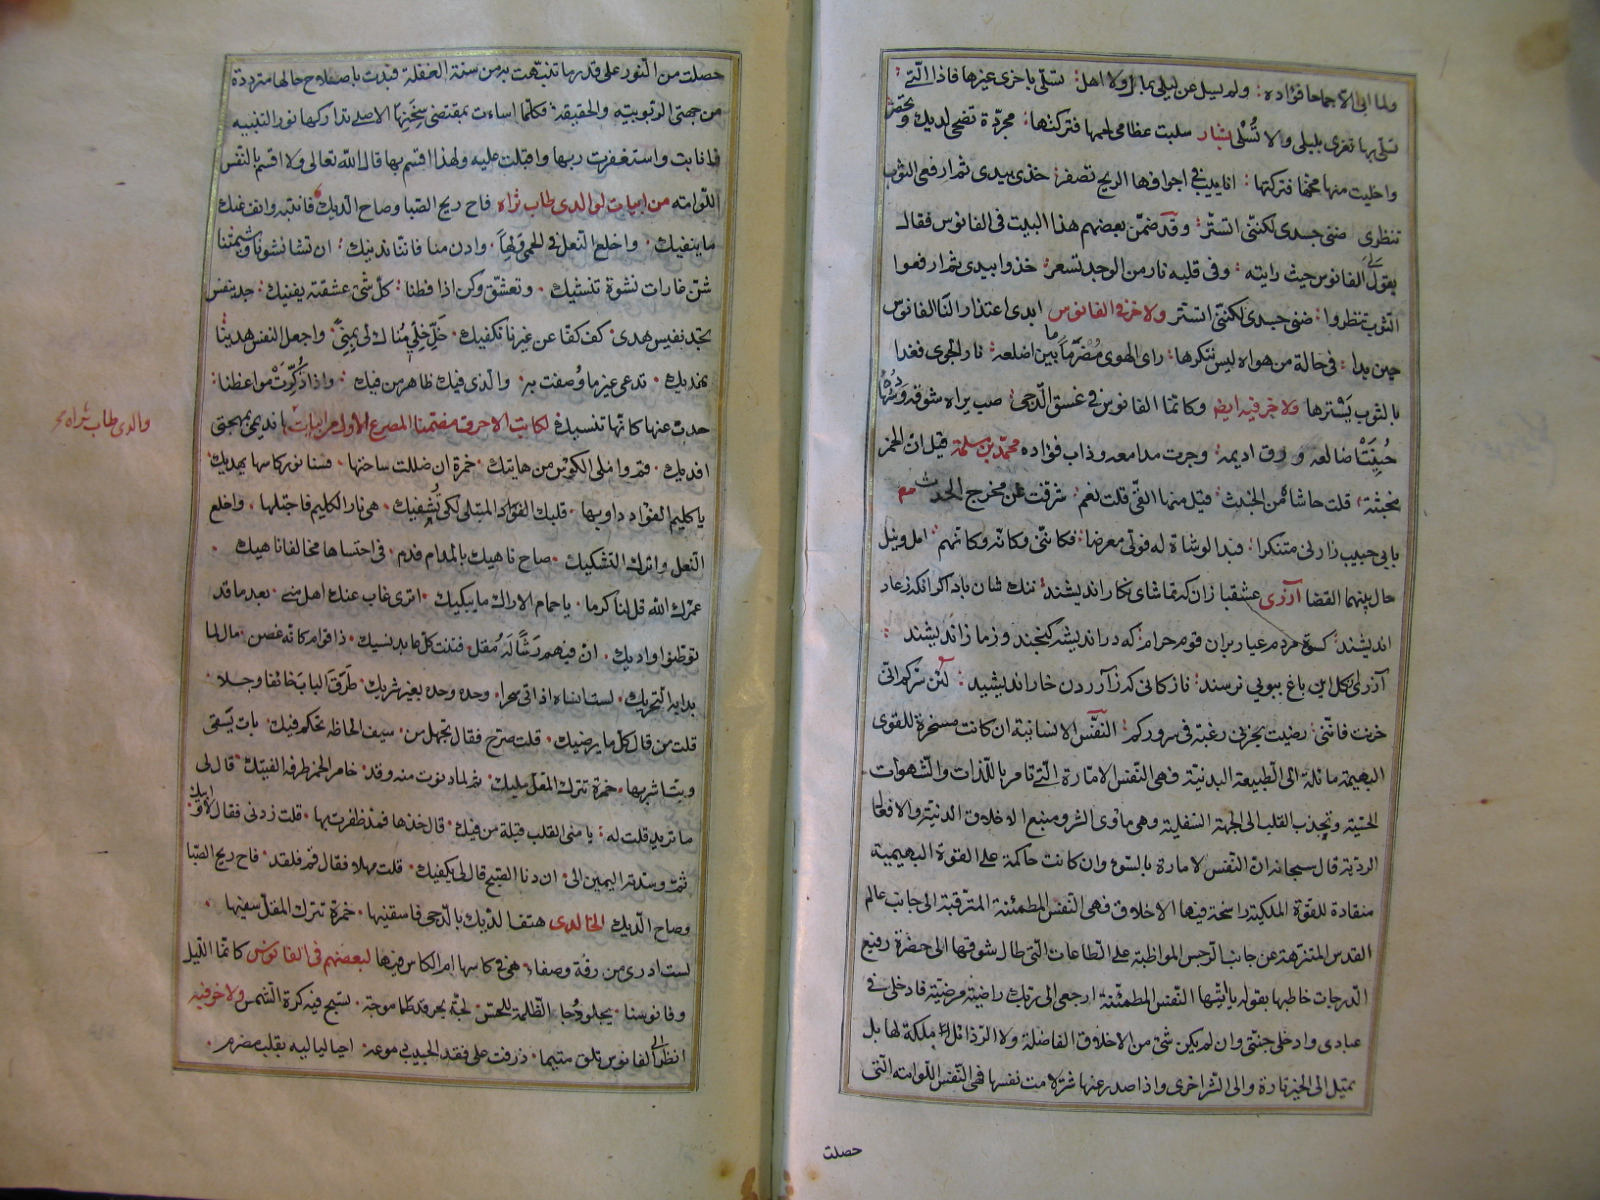 ولما ابى الا جماحا فؤاده ولم يسل عن ليلى بمال ولا اهل تسلى باخرى غيرها فاذا التي
تسلى بها تغرى بليلى ولا تُسْلى بشار سلبت عظامى لحمها فتركتها مجردة تضحى لديك وتخصر
واخليت منها مخها فتركتها انابيب فى اجوافها الريح تصفر خذى بيدى ثم ارفعى الثوب
تنظرى ضنى جسدى لكننى اتستر وقد ضمن بعضهم هذا البيت فى الفانوس فقال
يقول لى الفانوس حيث رايته وفى قلبه نار من الوجد تسعر خذوا بيدى ثم ارفعوا
الثوب تنظروا ضنى جسدى لكننى اتستر ولاخر فى الفانوس ابدى اعتذارا لنا الفانوس
حين بدا فى حالة من هواه ليس ننكرها راى الهوى مُضْرَما ما بين اضلعه نار الجوى فغدا
بالثوب يَسْترها ولاخر فيه ايضا وكانما الفانوس فى غسق الدجى صب براه شوقه وسُهاده
حُنِيَتْ اضالعه ورق اديمه وجرت مدامعه وذاب فؤاده محمد بن سلمة قيل ان الخمر
مخبثة قلت حاشاه من الخبث قيل منها القئ قلت نعم شرفت عن مخرج الحدث
بابى حبيب زارنى متنكرا فبدا لوشاة له فولى معرضا فكاننى وكانه وكانهم امل ونيل
حال بينهما القضا آزرى عشقبازان كه تماشاى نكار انديشند ننك شان باد اكر انكه ز عار
انديشند كوى مردم عيار بران قوم حرام كه در انديشه كنجند و زما ز انديشند
آزرى كل اين باغ ببويى نرسند نازكانى كه ز آزردن خار انديشيد لئن سركم انى
حزنت فاننى رضيت بحزنى رغبة فى سروركم النفس الانسانية ان كانت مسخرة للقوى
البهيمة مائلة الى الطبيعة البدنية فهى النفس الامارة التى تامر باللذات والشهوات
الحسية وتجذب القلب الى الجهة السفلية وهى ماوى الشر ومنبع الاخلاق الدنية والافعال
الردية قال سبحانه ان النفس لامارة بالسوء وان كانت حاكمة على القوة البهيمية
منقادة للقوة الملكية راسخة فيها الاخلاق فهى النفس المطمئنة المترقية الى جانب عالم
القدس المتنزهة عن جانب الرجس المواظبة على الطاعات التى طال شوقها الى حضرة رفيع
الدرجات خاطبها بقوله يا ايتها النفس المطمئنة ارجعى الى ربك راضية مرضية فادخلى فى
عبادى وادخلى جنتى وان لم يكن شئ من الاخلاق الفاضلة ولا الرذائل ملكة لها بل
تميل الى الخير تارة والى الشر اخرى واذا صدر عنها شر لامت نفسها فهى النفس اللوامة التى
حصلت
حصلت من النور على قدر ما تنبهت به من سنة الغفلة فبدت باصلاح حالها مترددة
من جهتى الربوبية والخليقة فكلما اساءت بمقتضى سجيتها الاصلى تداركها نور التنبيه
فانابت واستغفرت ربها واقبلت عليه ولهذا اقسم بها قال الله تعالى ولا اقسم بالنفس
اللوامه من ابيات لوالدى طاب ثراه فاح ريح الصبا وصاح الديك فانتبه وانف عنك
ما ينفيك واخلع النعل فى الحمى ولهاً وادن منا فاننا ندنيك ان تشا نشوة
شن غارات نشوة تنشيك وتعشق وكن اذا فطنا كل شئ عشقته يفنيك جد بنفس
تجد نفيس هدى كف كفا عن غيرنا نكفيك خَلِّ خِلِّي مُناك لى بِمِنىً واجعل النفس هدينا
نهديك تدعى غير ما وُصفت به والذى فيك ظاهر من فيك واذا ذُكِّرَتْ مواعظنا
حدت عنها كانها تنسيك لكاتب الاحرف مضمنا المصرع الاول من ابيات يا نديمى بمهجتى
افديك قم واملى الكؤس من هاتيك خمرة ان ضللت ساحتها فسنا نور كاسها يهديك
يا كليم الفؤاد داو بها قلبك الفؤاد المبتلى لكى تُشفيك هى نار الكليم فاجتلها واخلع
النعل واترك التشكيك صاح ناهيك بالمدام فدم فى احتساها مخالفا ناهيك
عمرك الله قل لنا كرما يا حمام الاراك ما يبكيك اترى غاب عنك اهل منى بعد ما قد
توطنوا واديك ان فيهم رَشًا لَهُ مُقَل فتنت كل عابد نسيك ذا قوام كانه غصن مال لما
بدا به التحريك لست انساه اذ اتى سحرا وحده وحده بغير شريك طَرَقَ الباب خائفا وجلا
قلت من قال كل ما يرضيك قلت صرح فقال تجهل من سيف الحاظه تحكم فيك بات يَسقى
وبت اشربها خمرة تترك المقل مليك ثم لما دنوت منه وقد خامر الخمر طرفه الفتيك قال لى
ما تريد قلت له يا منى القلب قبلة من فيك قال خذها فمذ ظفرت بها قلت زدنى فقال لا وابيك
ثم وسدته اليمين الى ان دنا الصبح قال لى يكفيك قلت مهلا فقال قم فلقد فاح ريح الصبا
وصاح الديك الخالدى هتف الديك بالدجى فاسقنيها خمرة تترك المقل سفيها
لست ادرى من رقة وصفاء هى فى كاسها ام الكاس فيها لبعضهم فى الفانوس كانما الليل
وفانوسنا يجلو دُجا الظلمة للحس لجة بحر قد طما موجه تسبح فيه كرة الشمس ولاخر فيه
انظر الى الفانوس تلق متيما ذرفت على فقد الحبيب دموعه احيا لياليه بقلب مضرم
والدى طاب ثراه